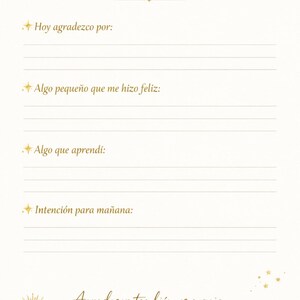 Hoy agradezco por:
Algo pequeño que me hizo feliz:
Algo que aprendí:
Intención para mañana: